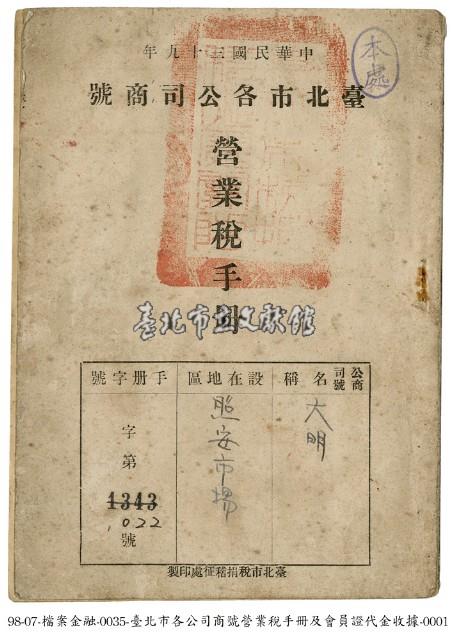 中華民國三十九年
本處
臺北市各公司商號
營業稅手冊
臺北市立文獻館
公司商號名稱
大明
設在地區
照安市場
手册字號
字第
1343
1022
號
臺北市稅捐稽征處印製
98-07-檔案金融-0035-臺北市各公司商號營業稅手冊及會員證代金收據-0001